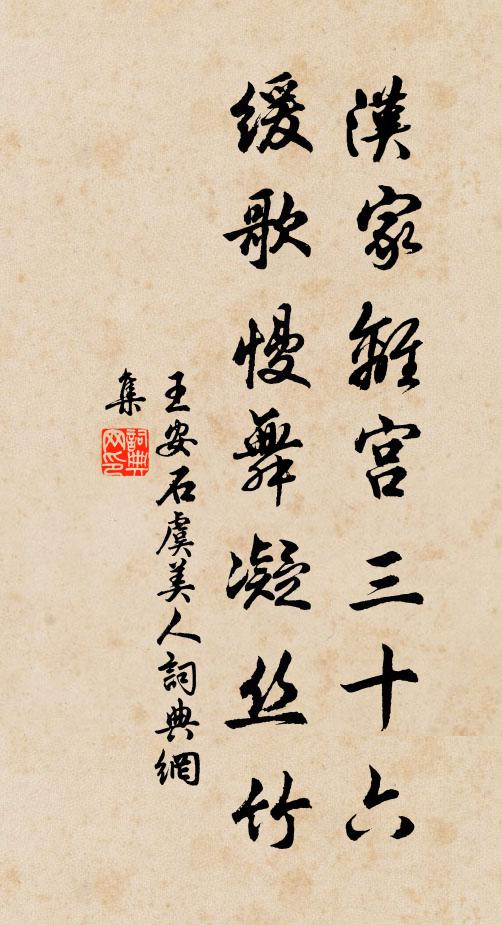 漢家離宮三十六
緩歌慢舞凝丝竹
王安石虞美人詞典網
集
詞典網印